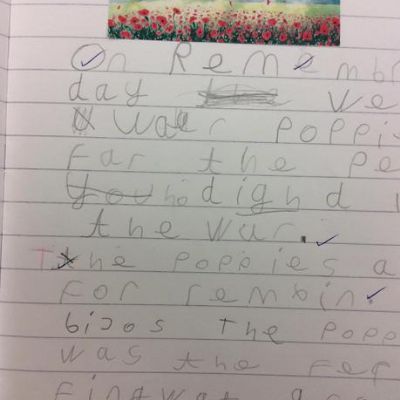 On Remembr
day we
war poppi
far the pe
ho dighd
the war.
The poppies a
for rembin
bicos the popp
was the